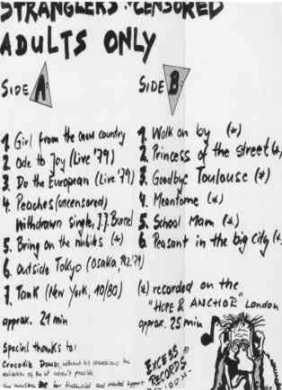 STRANGLERS "CENSORED
ADULTS ONLY
SIDE A
1. Girl from the snow country
2. Ode to Joy (Live '79)
3. Do the European (Live '79)
4. Peaches (uncensored)
withdrawn single, J.J. Burnel
5. Bring on the nubiles (*)
6. Outside Tokyo (Osaka, '79)
7. Tank (New York, 10/80)
approx. 21 min
Special thanks to:
Crocodile
for financial and mental support
SIDE B
1. Walk on by (*)
2. Princess of the street (*)
3. Goodbye Toulouse (*)
4. Meantome (*)
5. School Mam (*)
6. Peasant in the big city (*)
(*) recorded on the
"HOPE & ANCHOR" London
approx. 25 min
EXCESS
RECORDS